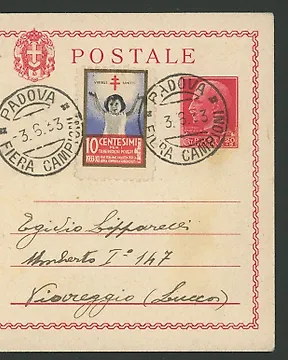 POSTALE
PADOVA
3.6.33
FIERA CAMPIONI
10 CENTESIMI
PADOVA
3.6.33
FIERA CAMPIONI
Egidio Lipparelli
Umberto I° 147
Viareggio (Lucca)